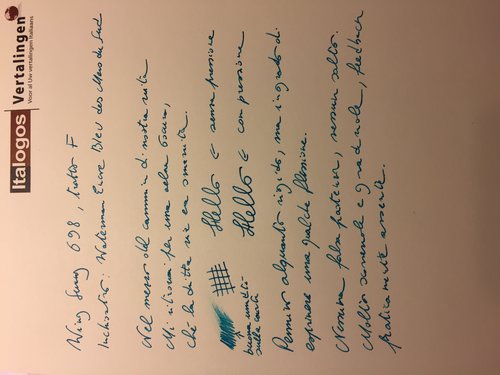 Italogos Vertalingen
Voor al Uw vertalingen Italiaans
Wing Sung 698, tratto F
Inchiostro: Waterman Encre Bleu des Mers du Sud
Nel mezzo del cammin di nostra vita
Mi ritrovai per una selva oscura,
ché la diritta via era smarrita.
Hello ← senza pressione
Hello ← con pressione
buona umidità
sulla carta
Pennino alquanto rigido, ma in grado di
esprimere una qualche flessione.
Nessuna falsa partenza, nessun salto.
Molto scorrevole e gradevole, feedback
praticamente assente.